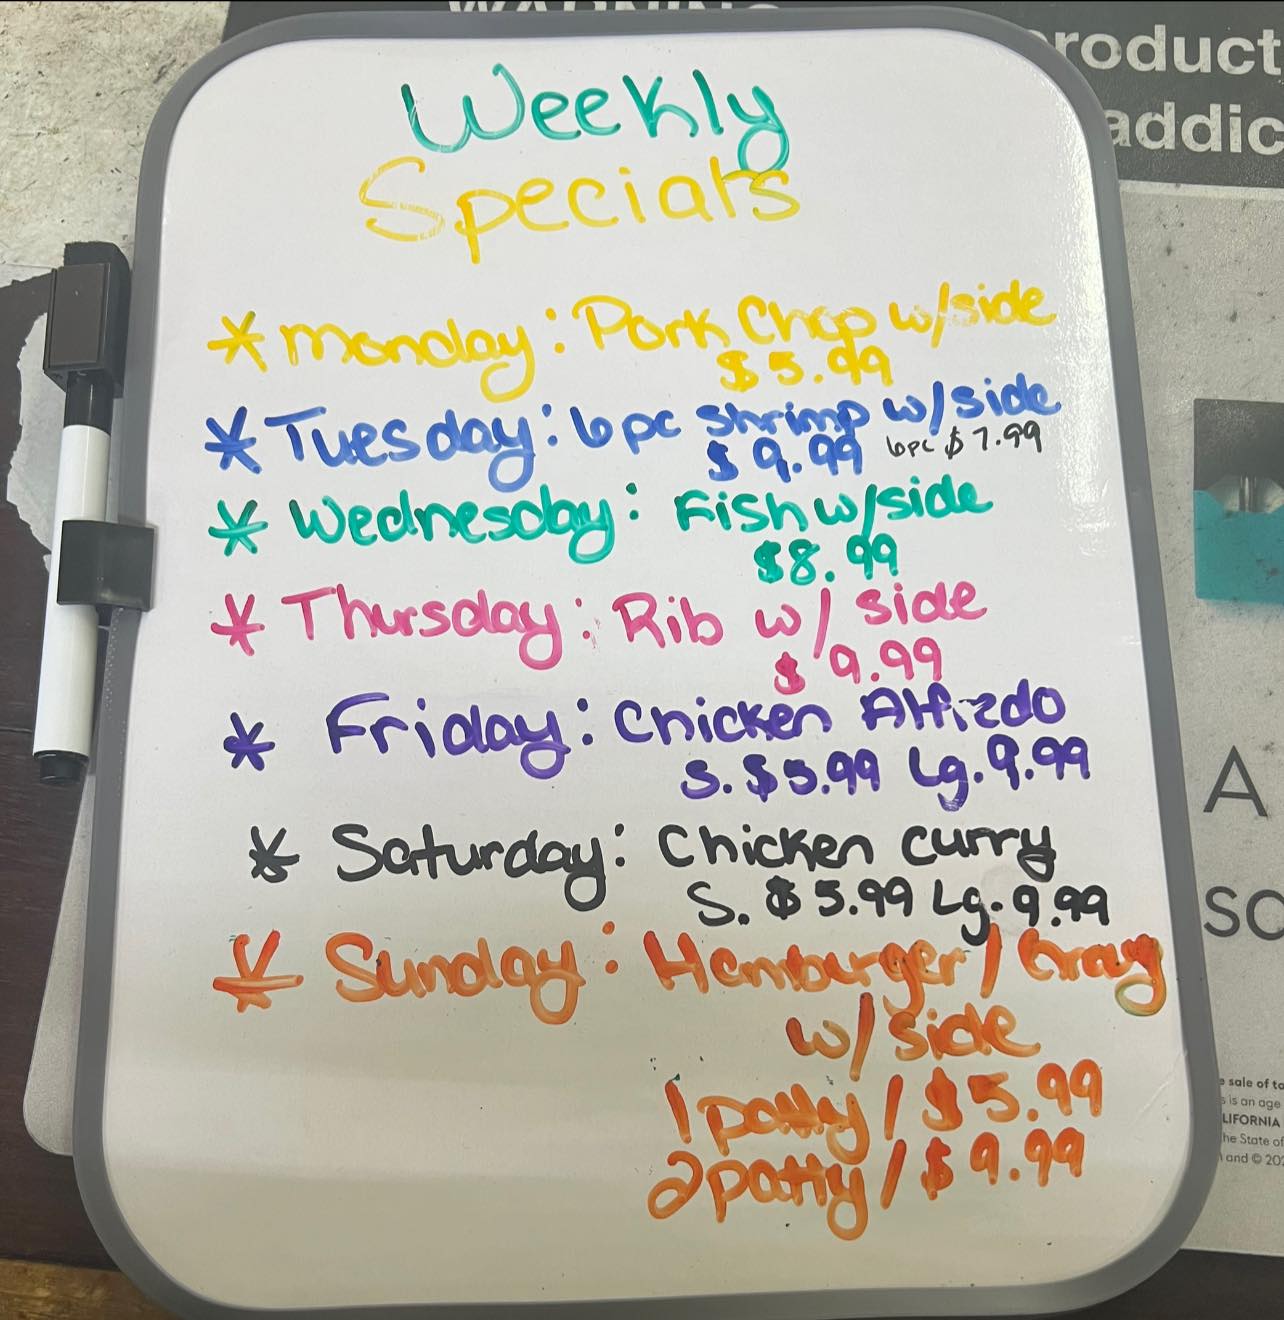 WARNING
roduct
addic
Weekly
Specials
* Monday: Pork Chop w/side
$5.99
* Tuesday: 6pc shrimp w/side
$9.99 6pc $7.99
* Wednesday: Fish w/side
$8.99
* Thursday: Rib w/ side
$9.99
* Friday: Chicken Alfredo
S. $5.99 Lg. 9.99
* Saturday: Chicken Curry
S. $5.99 Lg. 9.99
* Sunday: Hamburger/Gravy
w/side
1 patty / $5.99
2 patty / $9.99
A
SC
e sale of to
s is an age
LIFORNIA
he State of
and © 202